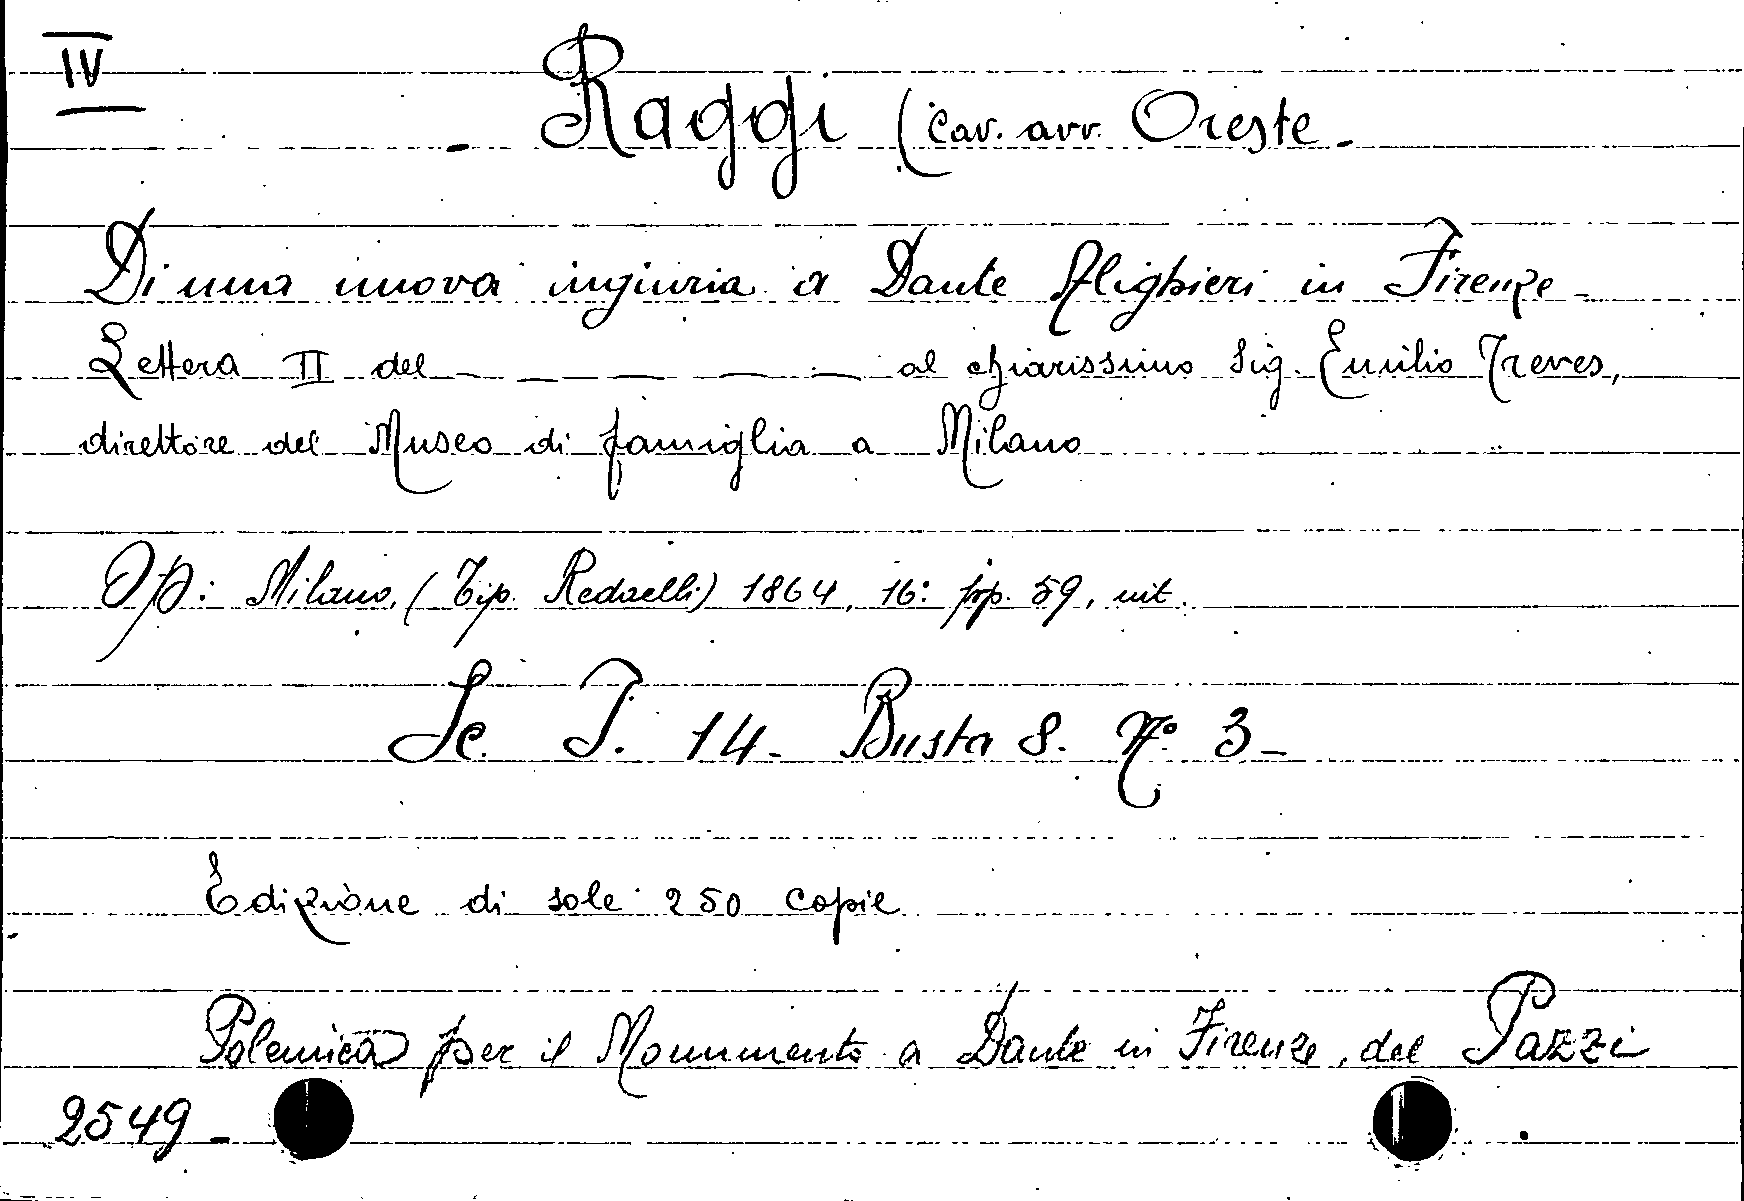 IV
- Raggi (Cav. avv. Oreste -
Di una nuova ingiuria a Dante Alighieri in Firenze -
Lettera II del — — — — — al chiarissimo Sig. Emilio Treves,
direttore del Museo di famiglia a Milano
Op: Milano, (Tip. Redaelli) 1864, 16: pp. 59, int.
Sc. T. 14 - Busta 8. N.º 3 -
Edizione di sole 250 copie
Polemica per il Monumento a Dante in Firenze, del Pazzi
2549 -